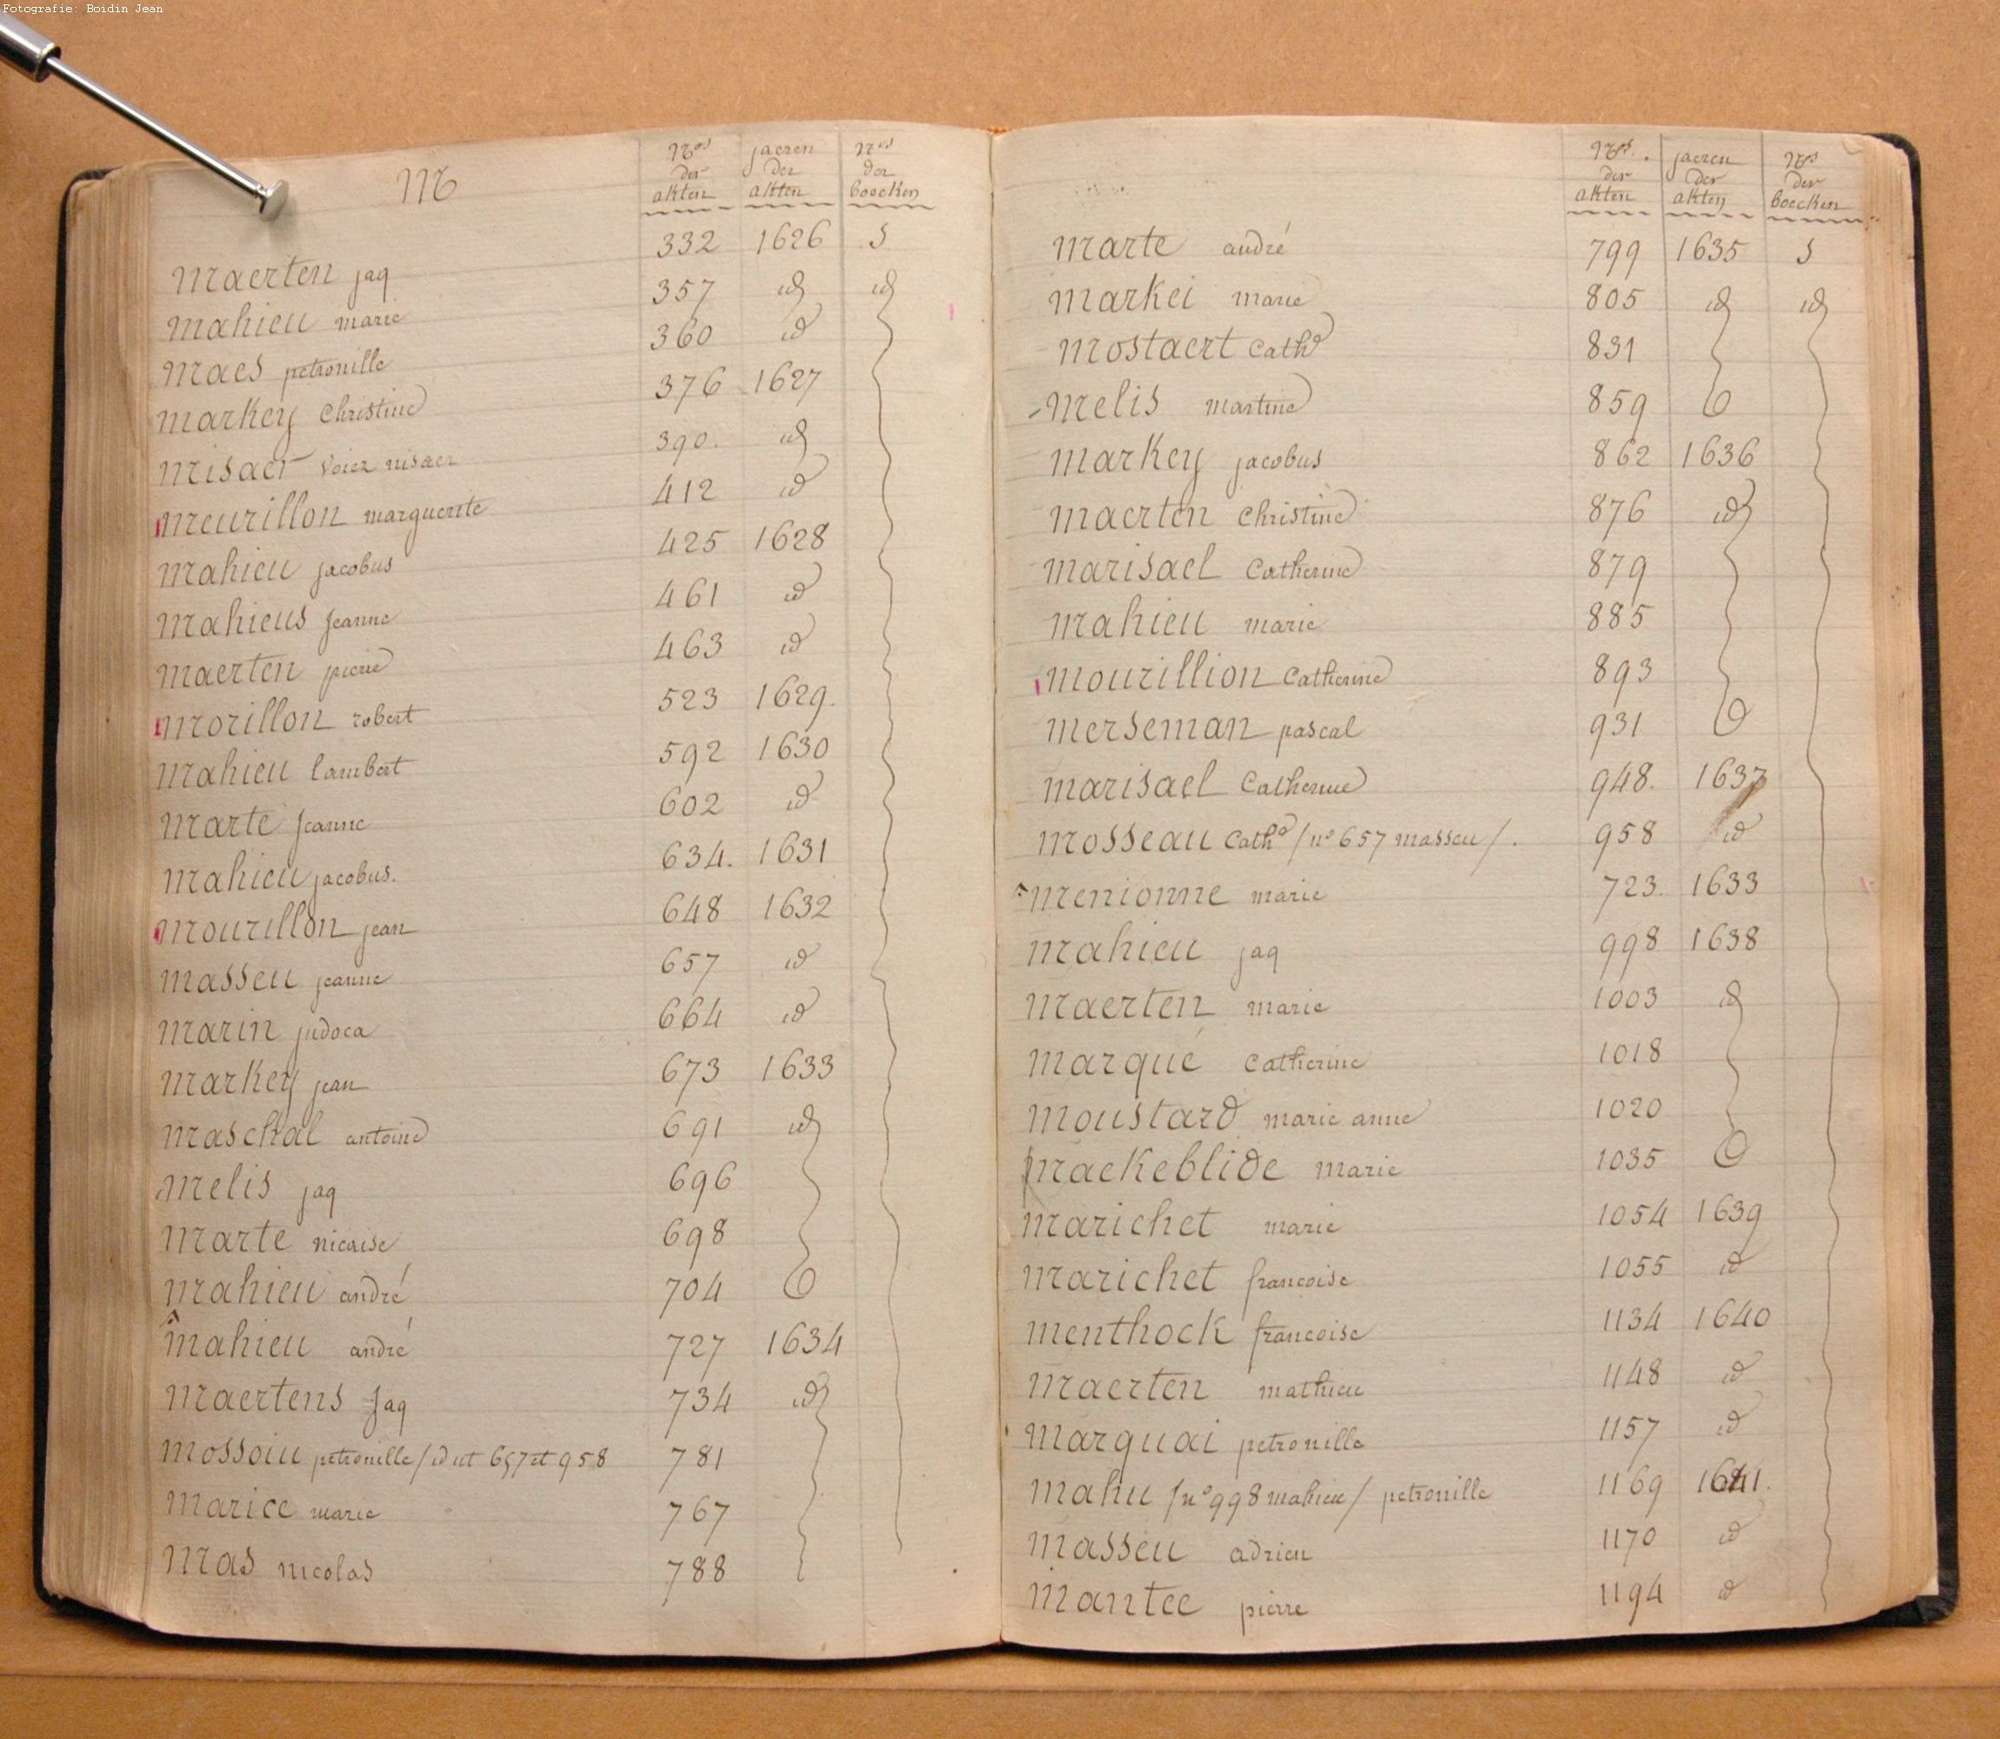 Fotografie: Boidin Jean
M
Nos der akten
jaeren der akten
Nos der boecken
maerten jaq 332 1626 5
mahieu marie 357 id id
maes petronille 360 id
markey christine 376 1627
misaer voiez nisaer 390. id
meurillon marguerite 412 id
mahieu jacobus 425 1628
mahieus jeanne 461 id
maerten pierre 463 id
morillon robert 523 1629.
mahieu lambert 592 1630
marte jeanne 602 id
mahieu jacobus. 634. 1631
mourillon jean 648 1632
masseu jeanne 657 id
marin judoca 664 id
markey jean 673 1633
maschal antoine 691 id
melis jaq 696
marte nicaise 698
mahieu andré 704
mahieu andré 727 1634
maertens jaq 734 id
mossoiu petronille / id et 657 et 958 781
marice marie 767
mas nicolas 788
Nos der akten
jaeren der akten
Nos der boecken
marte andré 799 1635 5
markei marie 805 id id
mostaert Cathe 831
melis martine 859
markey jacobus 862 1636
maerten christine 876 id
marisael Catherine 879
mahieu marie 885
mourillion Catherine 893
merseman pascal 931
marisael Catherine 948. 1637
mosseau Cathe / no 657 masseu / . 958 id
menionne marie 723. 1633
mahieu jaq 998 1638
maerten marie 1003 id
marqué catherine 1018
moustard marie anne 1020
mackeblide marie 1035
marichet marie 1054 1639
marichet francoise 1055 id
menthock francoise 1134 1640
maerten mathieu 1148 id
marquai petronille 1157 id
mahu / no 998 mahieu / petronille 1169 1641.
masseu adrien 1170 id
mantee pierre 1194 id